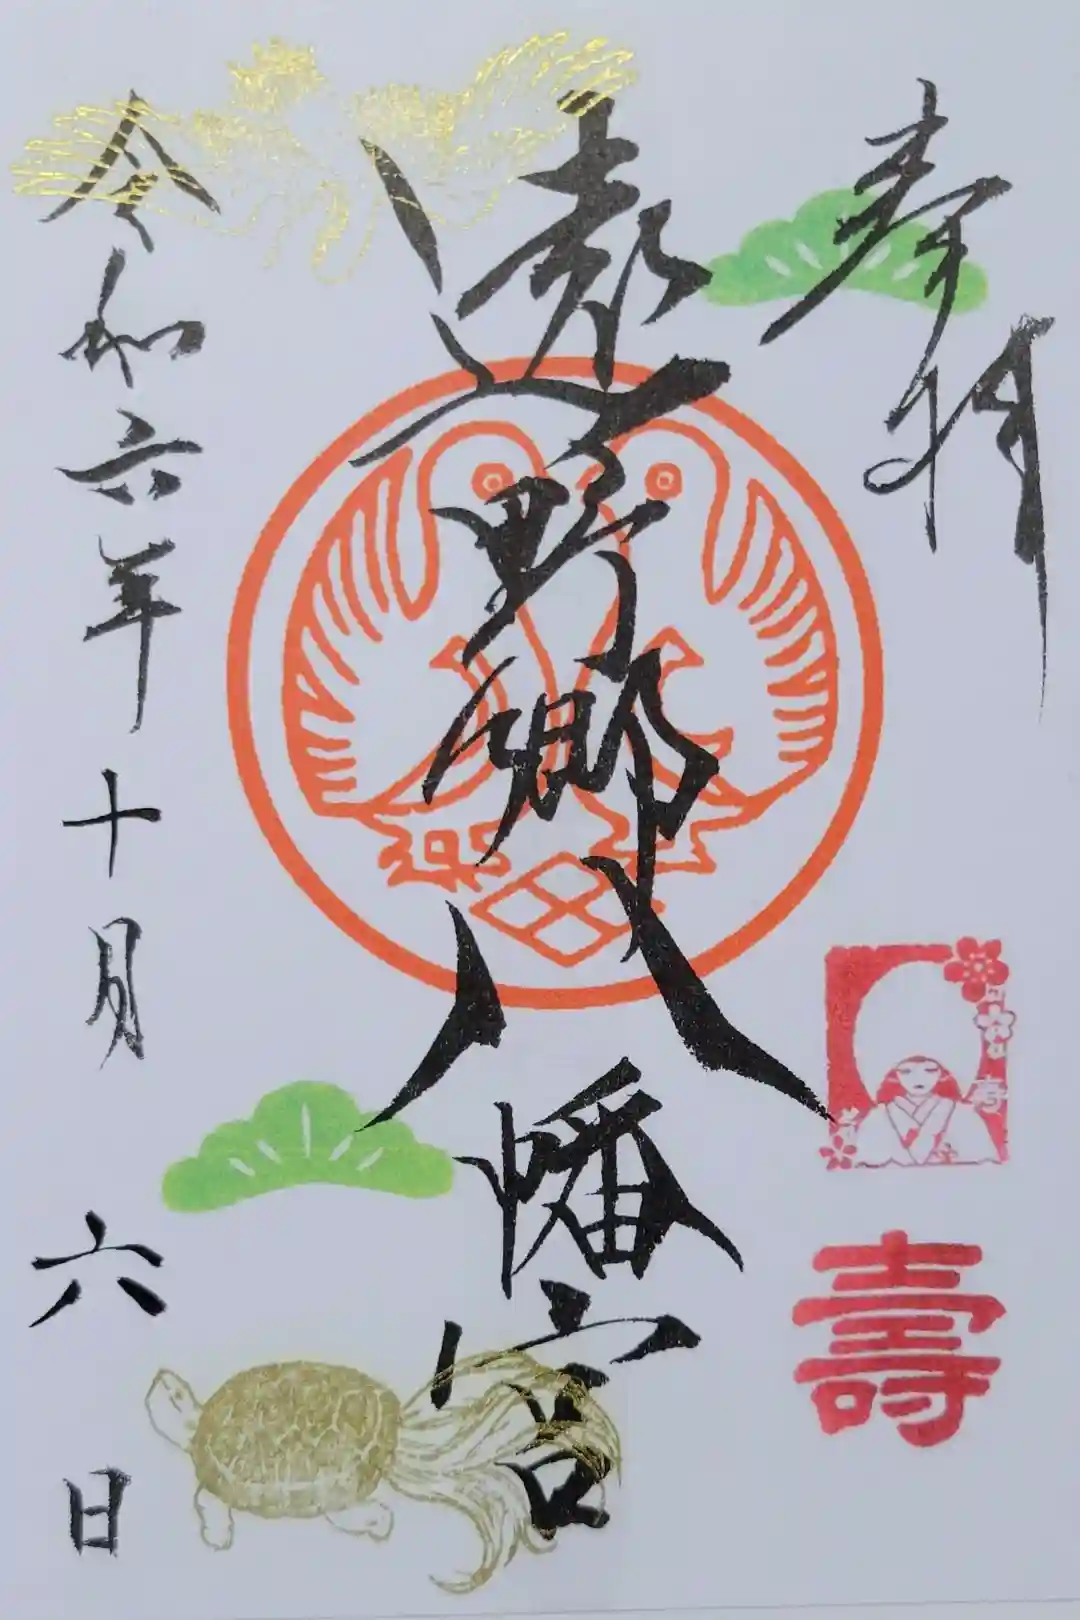 奉拝
遠野郷八幡宮
令和六年十月六日
寿
壽